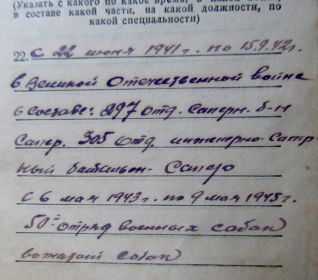 (Указать с какого по какое время,
в составе какой части, на какой должности, по
какой специальности)
22. С 22 июня 1941г. по 15.9.42г.
в Великой Отечественной войне
в составе: 297 отд. саперн. б-н
Сапер. 305 отд. инженерно-сапер
ный батальон - Сапер
С 6 мая 1943г. по 9 мая 1945г.
50= отряд военных собак
вожатый собак